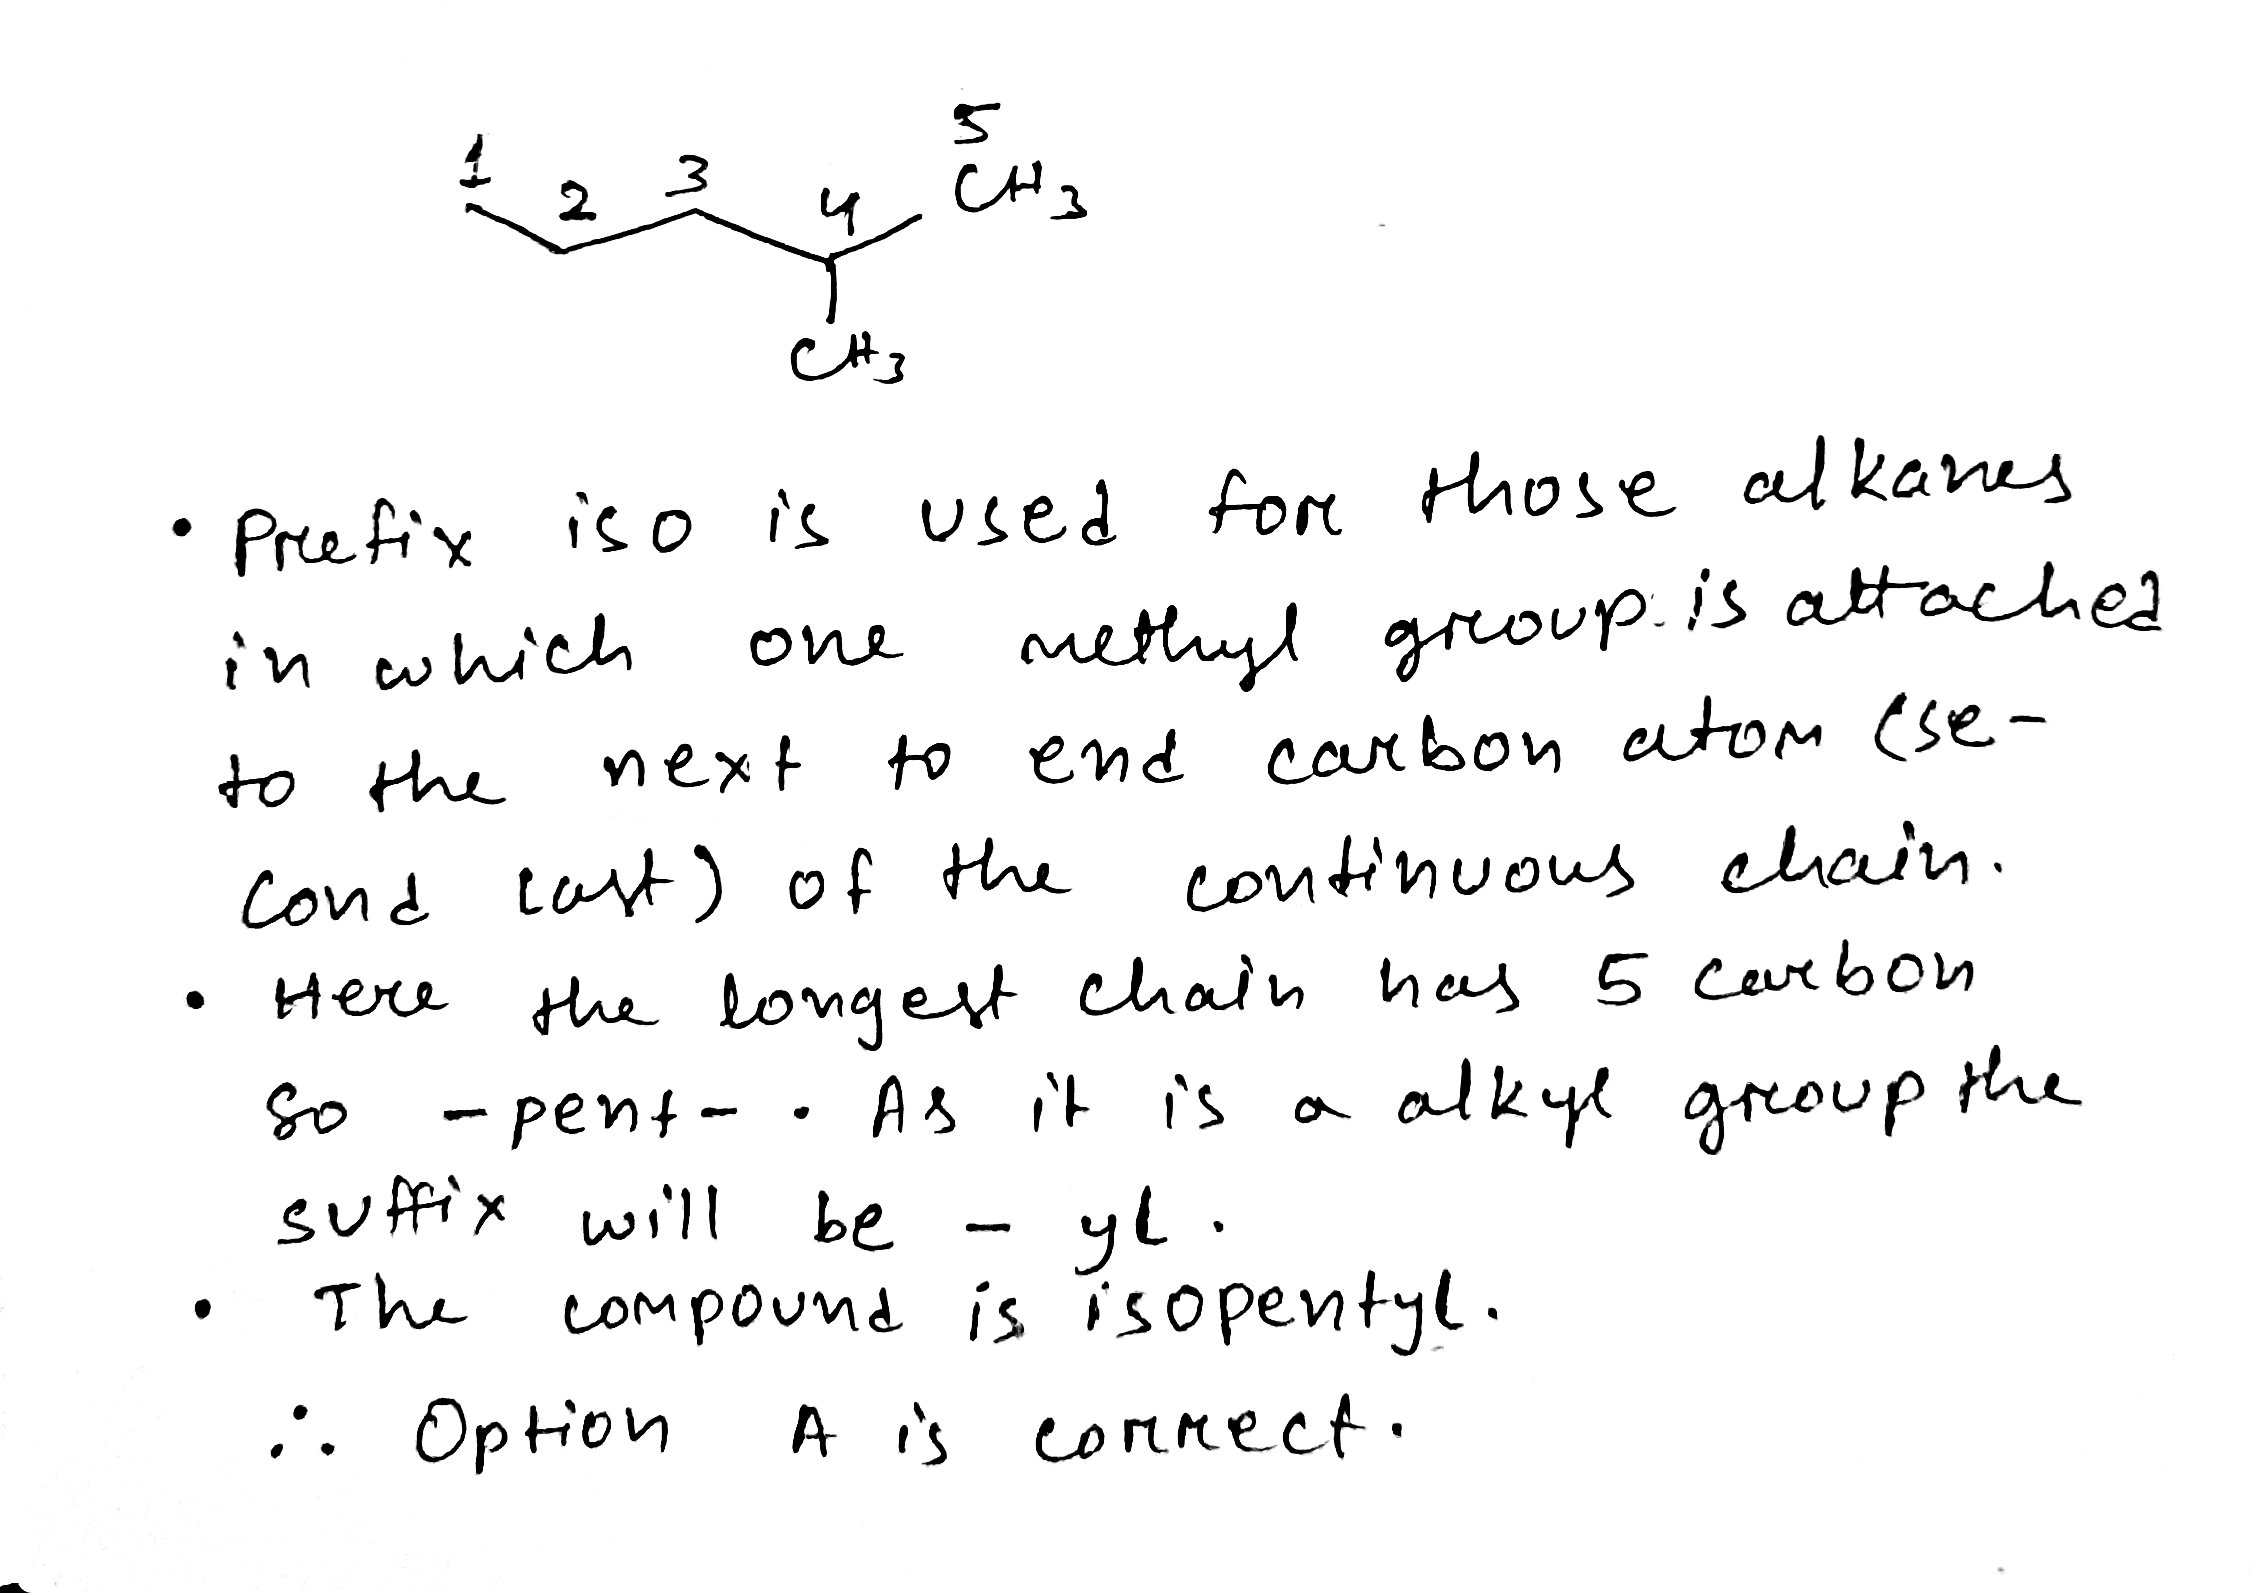 5
1 2 3 4 CH3
CH3
• Prefix iso is used for those alkanes
in which one methyl group is attached
to the next to end carbon atom (se-
cond last) of the continuous chain.
• Here the longest chain has 5 carbon
so -pent- . As it is a alkyl group the
suffix will be - yl.
• The compound is isopentyl.
∴ Option A is correct.